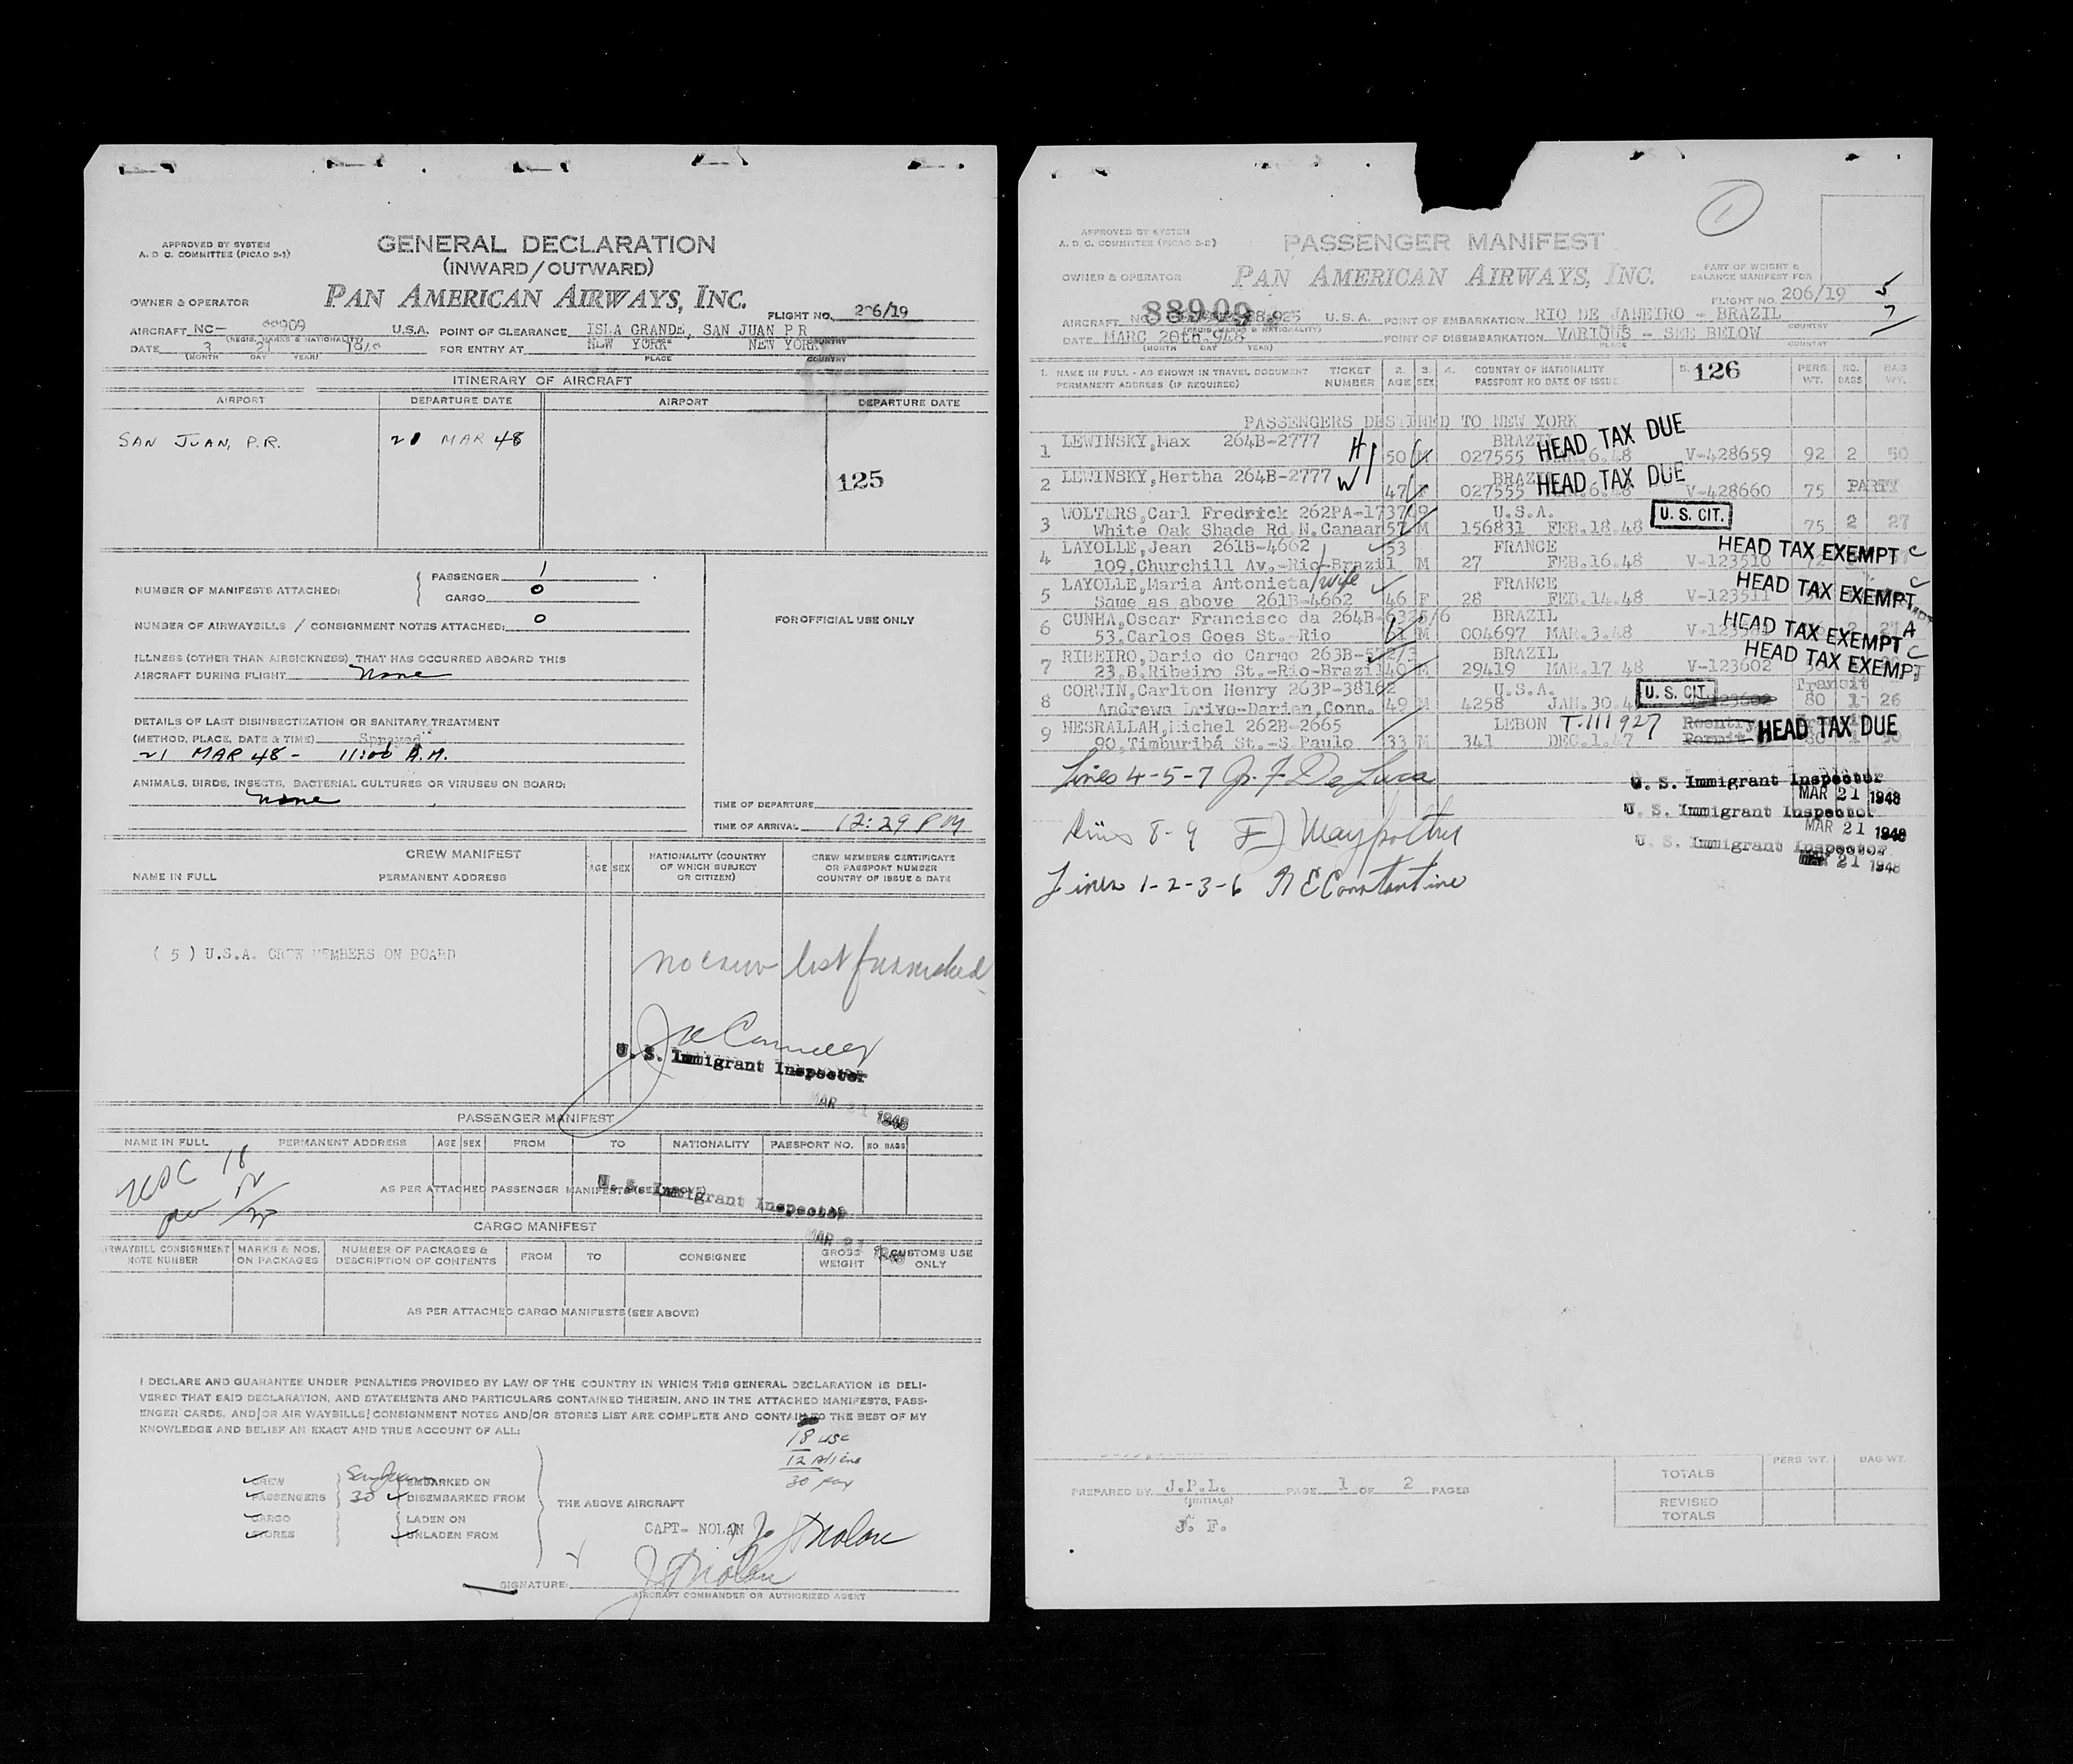 APPROVED BY SYSTEM
A. D. C. COMMITTEE (PICAO 3-1)
GENERAL DECLARATION
(INWARD/OUTWARD)
OWNER & OPERATOR
PAN AMERICAN AIRWAYS, INC.
FLIGHT NO. 206/19
AIRCRAFT NC- 88909 U.S.A. POINT OF CLEARANCE ISLA GRANDE, SAN JUAN P R
(REGIS. MARKS & NATIONALITY) COUNTRY
DATE 3 21 1948 FOR ENTRY AT NEW YORK NEW YORK
(MONTH DAY YEAR) PLACE COUNTRY
ITINERARY OF AIRCRAFT
AIRPORT DEPARTURE DATE AIRPORT DEPARTURE DATE
SAN JUAN, P.R. 21 MAR 48
125
NUMBER OF MANIFESTS ATTACHED: { PASSENGER 1
CARGO 0
NUMBER OF AIRWAYBILLS / CONSIGNMENT NOTES ATTACHED: 0
FOR OFFICIAL USE ONLY
ILLNESS (OTHER THAN AIRSICKNESS) THAT HAS OCCURRED ABOARD THIS
AIRCRAFT DURING FLIGHT None
DETAILS OF LAST DISINSECTIZATION OR SANITARY TREATMENT
(METHOD, PLACE, DATE & TIME) Sprayed
21 MAR 48 - 11:00 A.M.
ANIMALS, BIRDS, INSECTS, BACTERIAL CULTURES OR VIRUSES ON BOARD:
none
TIME OF DEPARTURE
TIME OF ARRIVAL 12:29 PM
CREW MANIFEST
NAME IN FULL PERMANENT ADDRESS AGE SEX
NATIONALITY (COUNTRY
OF WHICH SUBJECT
OR CITIZEN)
CREW MEMBERS CERTIFICATE
OR PASSPORT NUMBER
COUNTRY OF ISSUE & DATE
( 5 ) U.S.A. CREW MEMBERS ON BOARD
no crew list furnished
U. S. Immigrant Inspector
MAR 21 1948
PASSENGER MANIFEST
NAME IN FULL PERMANENT ADDRESS AGE SEX FROM TO NATIONALITY PASSPORT NO. NO BAGS
USC 18
12
AS PER ATTACHED PASSENGER MANIFESTS (SEE ABOVE)
U. S. Immigrant Inspector
MAR 21 1948
CARGO MANIFEST
AIRWAYBILL CONSIGNMENT
NOTE NUMBER
MARKS & NOS.
ON PACKAGES
NUMBER OF PACKAGES &
DESCRIPTION OF CONTENTS
FROM TO CONSIGNEE
GROSS
WEIGHT
CUSTOMS USE
ONLY
AS PER ATTACHED CARGO MANIFESTS (SEE ABOVE)
I DECLARE AND GUARANTEE UNDER PENALTIES PROVIDED BY LAW OF THE COUNTRY IN WHICH THIS GENERAL DECLARATION IS DELI-
VERED THAT SAID DECLARATION, AND STATEMENTS AND PARTICULARS CONTAINED THEREIN, AND IN THE ATTACHED MANIFESTS, PASS-
ENGER CARDS, AND/OR AIR WAYBILLS/CONSIGNMENT NOTES AND/OR STORES LIST ARE COMPLETE AND CONTAIN TO THE BEST OF MY
KNOWLEDGE AND BELIEF AN EXACT AND TRUE ACCOUNT OF ALL:
18 usc
12 Aliens
30 pax
CREW San Juan EMBARKED ON
PASSENGERS 30 DISEMBARKED FROM
THE ABOVE AIRCRAFT
CARGO LADEN ON
STORES UNLADEN FROM
CAPT- NOLAN
SIGNATURE:
AIRCRAFT COMMANDER OR AUTHORIZED AGENT
1
APPROVED BY SYSTEM
A. D. C. COMMITTEE (PICAO 3-2)
PASSENGER MANIFEST
OWNER & OPERATOR
PAN AMERICAN AIRWAYS, INC.
PART OF WEIGHT &
BALANCE MANIFEST FOR
FLIGHT NO. 206/19
5
7
AIRCRAFT NC 88909 U.S.A. POINT OF EMBARKATION RIO DE JANEIRO - BRAZIL
(REGIS. MARKS & NATIONALITY) COUNTRY
DATE MARC 20th.948 POINT OF DISEMBARKATION VARIOUS - SEE BELOW
(MONTH DAY YEAR) PLACE COUNTRY
1. NAME IN FULL - AS SHOWN IN TRAVEL DOCUMENT
PERMANENT ADDRESS (IF REQUIRED)
TICKET
NUMBER
2. AGE
3. SEX
4. COUNTRY OF NATIONALITY
PASSPORT NO DATE OF ISSUE
5. 126
PERS. WT.
NO. BAGS
BAG WT.
PASSENGERS DESTINED TO NEW YORK
1 LEWINSKY,Max 264B-2777 H BRAZIL HEAD TAX DUE
50 M 027555 6.48 V-428659 92 2 50
2 LEWINSKY,Hertha 264B-2777 W BRAZIL HEAD TAX DUE
47 F 027555 6.48 V-428660 75 PARTY
3 WOLTERS,Carl Fredrick 262PA-173769 U.S.A. U.S. CIT.
White Oak Shade Rd.N.Canaan 57 M 156831 FEB.18.48 75 2 27
4 LAYOLLE,Jean 261B-4662 53 FRANCE HEAD TAX EXEMPT C
109,Churchill Av.-Rio-Brazil M 27 FEB.16.48 V-123510
5 LAYOLLE,Maria Antonieta wife FRANCE HEAD TAX EXEMPT C
Same as above 261B-4662 46 F 28 FEB.14.48 V-123511
6 CUNHA,Oscar Francisco da 264B-6325/6 BRAZIL HEAD TAX EXEMPT A
53,Carlos Goes St.-Rio M 004697 MAR.3.48
7 RIBEIRO,Dario do Carmo 263B-572/3 BRAZIL HEAD TAX EXEMPT C
23,B.Ribeiro St.-Rio-Brazil 40 M 29419 MAR.17 48 V-123602
8 CORWIN,Carlton Henry 263P-38162 U.S.A. U.S. CIT. Transit
Andrews Drive-Darien,Conn. 49 M 4258 JAN.30.4 80 1 26
9 NESRALLAH,Michel 262B-2665 LEBON T-111927 Reentry HEAD TAX DUE
90,Timburibá St.-S Paulo 33 M 341 DEC.1.47 Permit 80 1 30
Lines 4-5-7 Jr. F. De Luca
U. S. Immigrant Inspector
MAR 21 1948
Lines 8-9
U. S. Immigrant Inspector
MAR 21 1948
U. S. Immigrant Inspector
MAR 21 1948
Lines 1-2-3-6 N E Constantine
PREPARED BY J.P.L. PAGE 1 OF 2 PAGES
(INITIALS)
J. F.
PERS WT. BAG WT.
TOTALS
REVISED
TOTALS